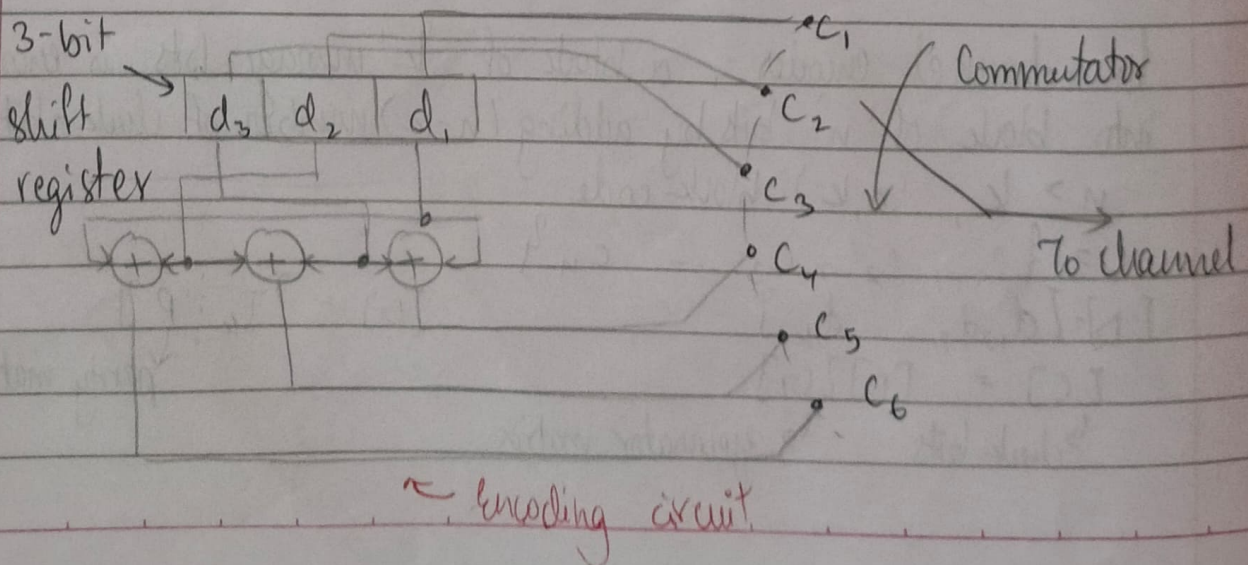 3-bit
shift
register
d₃ d₂ d₁
+ + +
C₁
C₂
C₃
C₄
C₅
C₆
Commutator
To channel
Encoding circuit